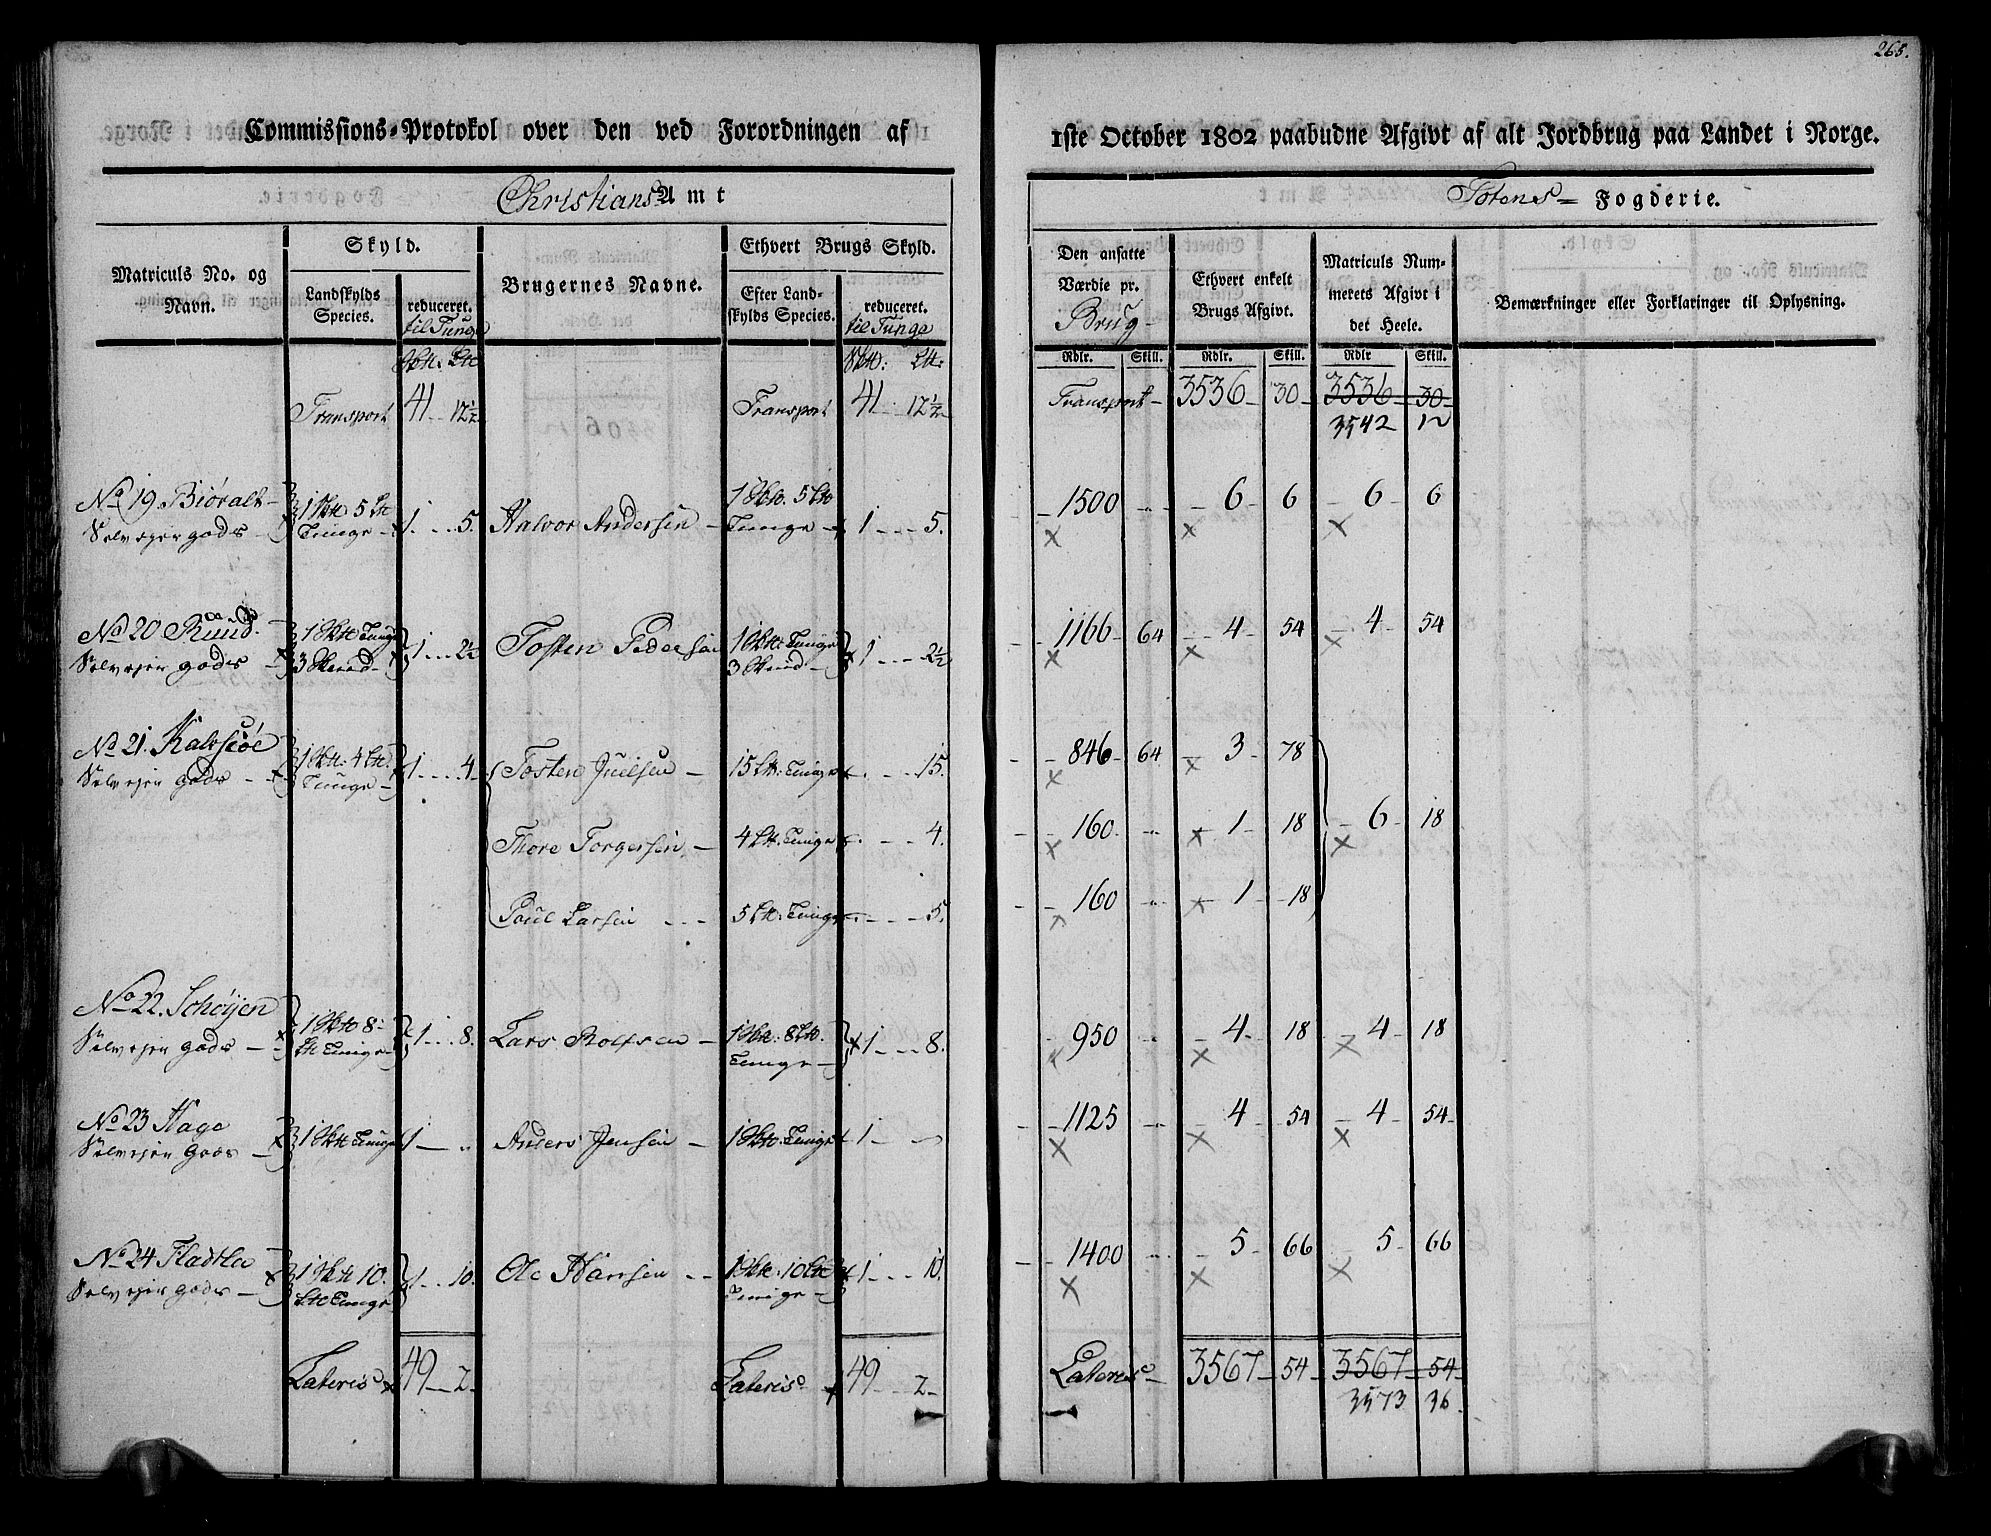 265.
Commissions-Protokol over den ved Forordningen af 1ste October 1802 paabudne Afgivt af alt Jordbrug paa Landet i Norge.
Christians Amt
Totens Fogderie.
Matriculs No. og Navn.
Skyld.
Landskylds Species.
reduceret. til Tunge
Brugernes Navne.
Ethvert Brugs Skyld.
Efter Landskylds Species.
reduceret. til Tunge
Den ansatte Værdie pr. Brug
Ethvert enkelt Brugs Afgivt.
Matriculs Nummerets Afgivt i det Heele.
Bemærkninger eller Forklaringer til Oplysning.
Rdlr. Skill. Rdlr. Skill. Rdlr Skill.
Transport 41 12½ Transport 41 12½ Transport 3536 30 3536 30
3542 12
No 19 Biøralt 1 Skt 5 Lt 1 Skt. 5 Lt
Selvejer gods Tunge 1 5. Halvor Andersen Tunge 1 5. 1500 6 6 6 6
No 20 Ruud. 1 Skt Tunge 1 Skt: Tunge
Selvejer gods 3 Skind 1 2½ Tosten Pedersen 3 Skind 1 2½ 1166 64 4 54 4 54
No 21. Kalvsiøe 1 Skt: 4 Lt:
Selvejer gods Tunge 1 4 Tosten Juelsen 15 Lt: Tunge 15. 846 64 3 78
Thore Torgersen 4 Lt: Tunge 4. 160 1 18 6 18
Poul Larsen 5 Lt: Tunge 5. 160 1 18
No 22. Schøyen 1 Skt 8 1 Skt: 8 Lt:
Selvejer gods Lt Tunge 1 8. Lars Rolfsen Tunge 1 8. 950 4 18 4 18
No 23 Hage
Selvejer gods 1 Skt Tunge 1 Anders Jensen 1 Skt: Tunge 1 1125 4 54 4 54
No 24 Fladtlie 1 Skt 10. 1 Skt: 10 Lt
Selvejer gods Lt Tunge 1 10. Ole Hansen Tunge 1 10. 1400 5 66 5 66
Lateris 49 2 Lateris 49 2 Lateris 3567 54 3567 54
3573 36